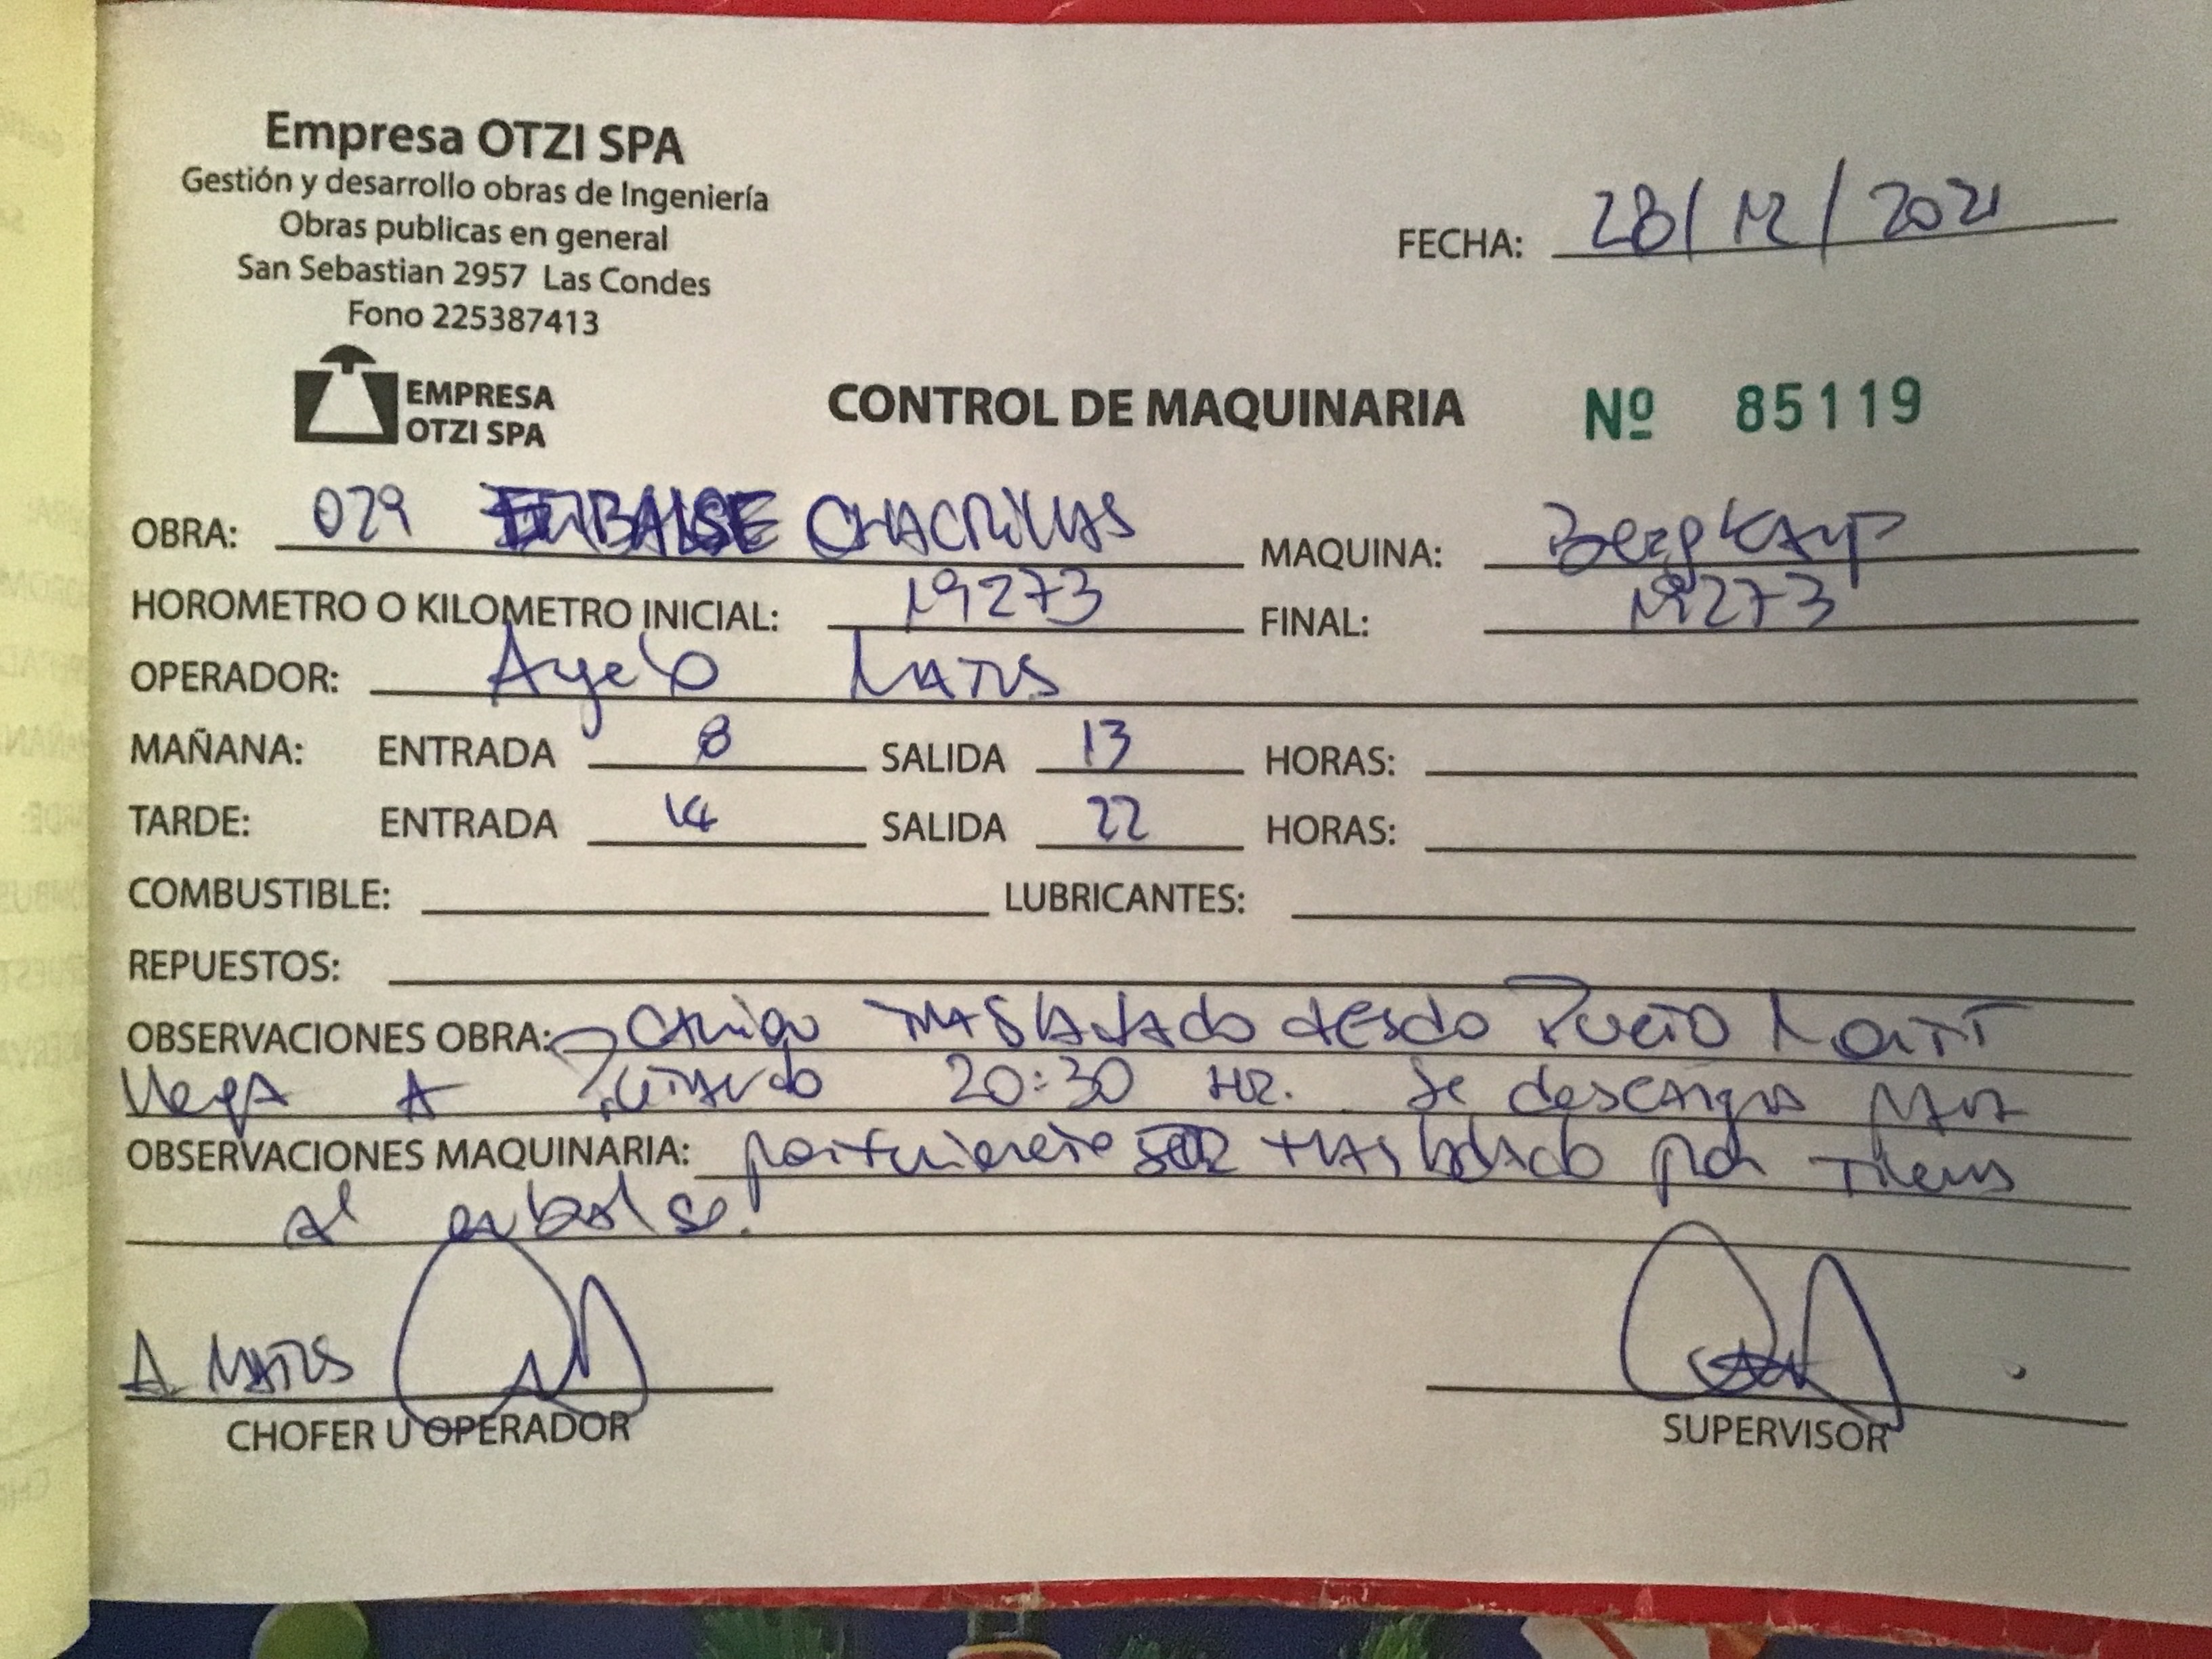 Empresa OTZI SPA
Gestión y desarrollo obras de Ingeniería
Obras publicas en general
San Sebastian 2957 Las Condes
Fono 225387413
FECHA: 28/12/2021
EMPRESA
OTZI SPA
CONTROL DE MAQUINARIA Nº 85119
OBRA: 029 EMBALSE CHACRILLAS MAQUINA:
HOROMETRO O KILOMETRO INICIAL: 19273 FINAL: 19273
OPERADOR: Angelo
MAÑANA: ENTRADA 8 SALIDA 13 HORAS:
TARDE: ENTRADA 14 SALIDA 22 HORAS:
COMBUSTIBLE: LUBRICANTES:
REPUESTOS:
OBSERVACIONES OBRA: Camion trasladado desde
llega A 20:30 HR. se descarga para
OBSERVACIONES MAQUINARIA: posteriormente ser trasladado por
al embalse.
CHOFER U OPERADOR SUPERVISOR